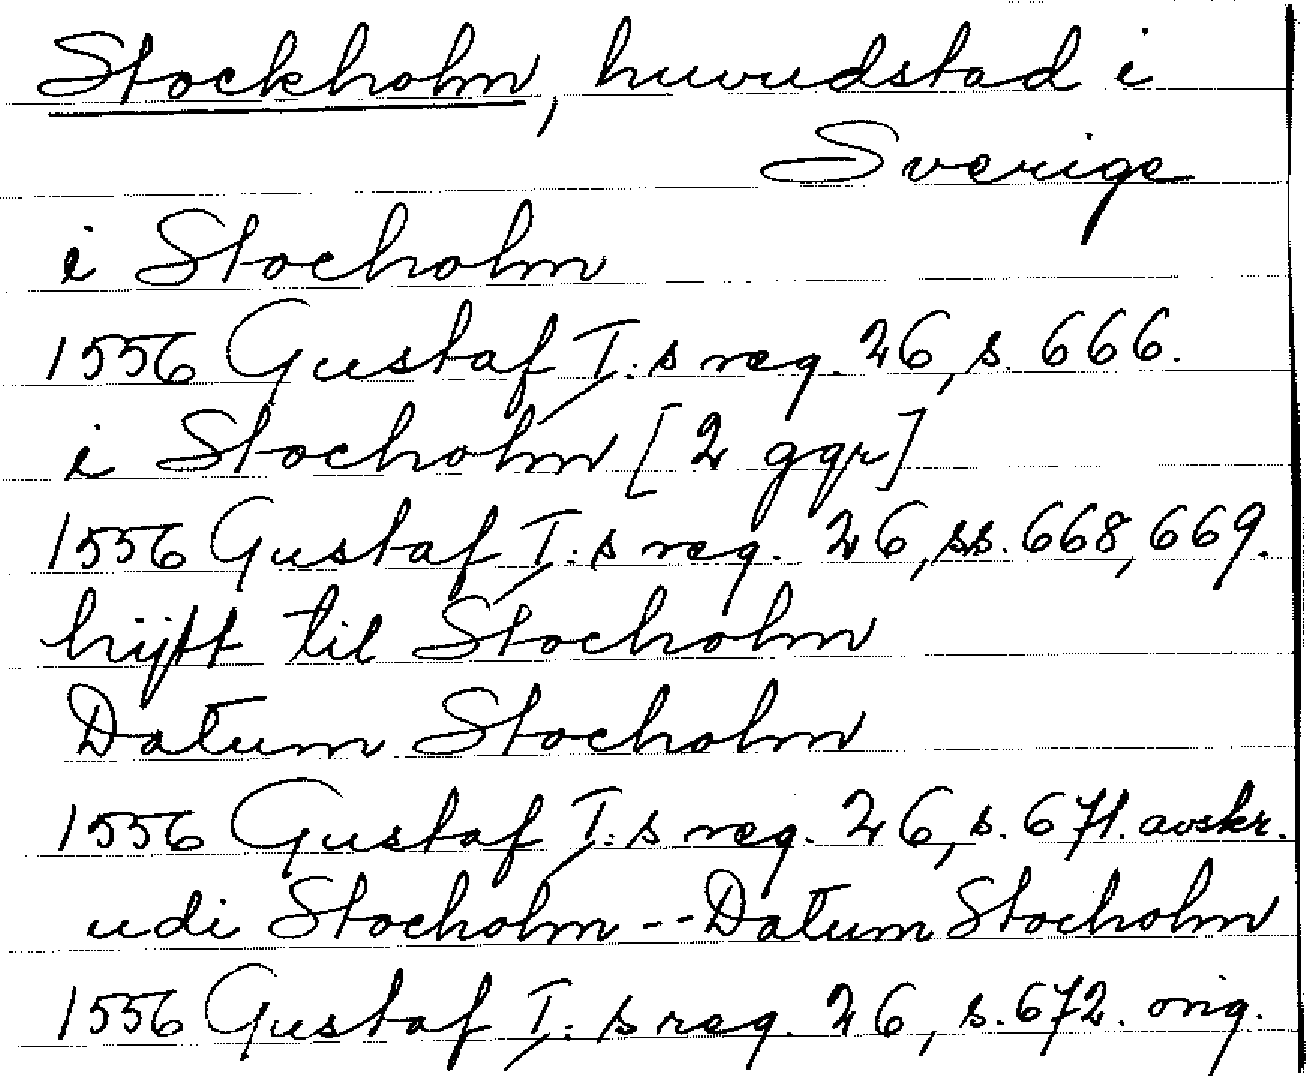 Stockholm, huvudstad i
Sverige
i Stocholm
1556 Gustaf I:s reg. 26, s. 666.
i Stocholm [2 ggr]
1556 Gustaf I:s reg. 26, ss. 668, 669.
hijtt til Stocholm
Datum Stocholm
1556 Gustaf I:s reg. 26, s. 671. avskr.
udi Stocholm -- Datum Stocholm
1556 Gustaf I:s reg. 26, s. 672. orig.